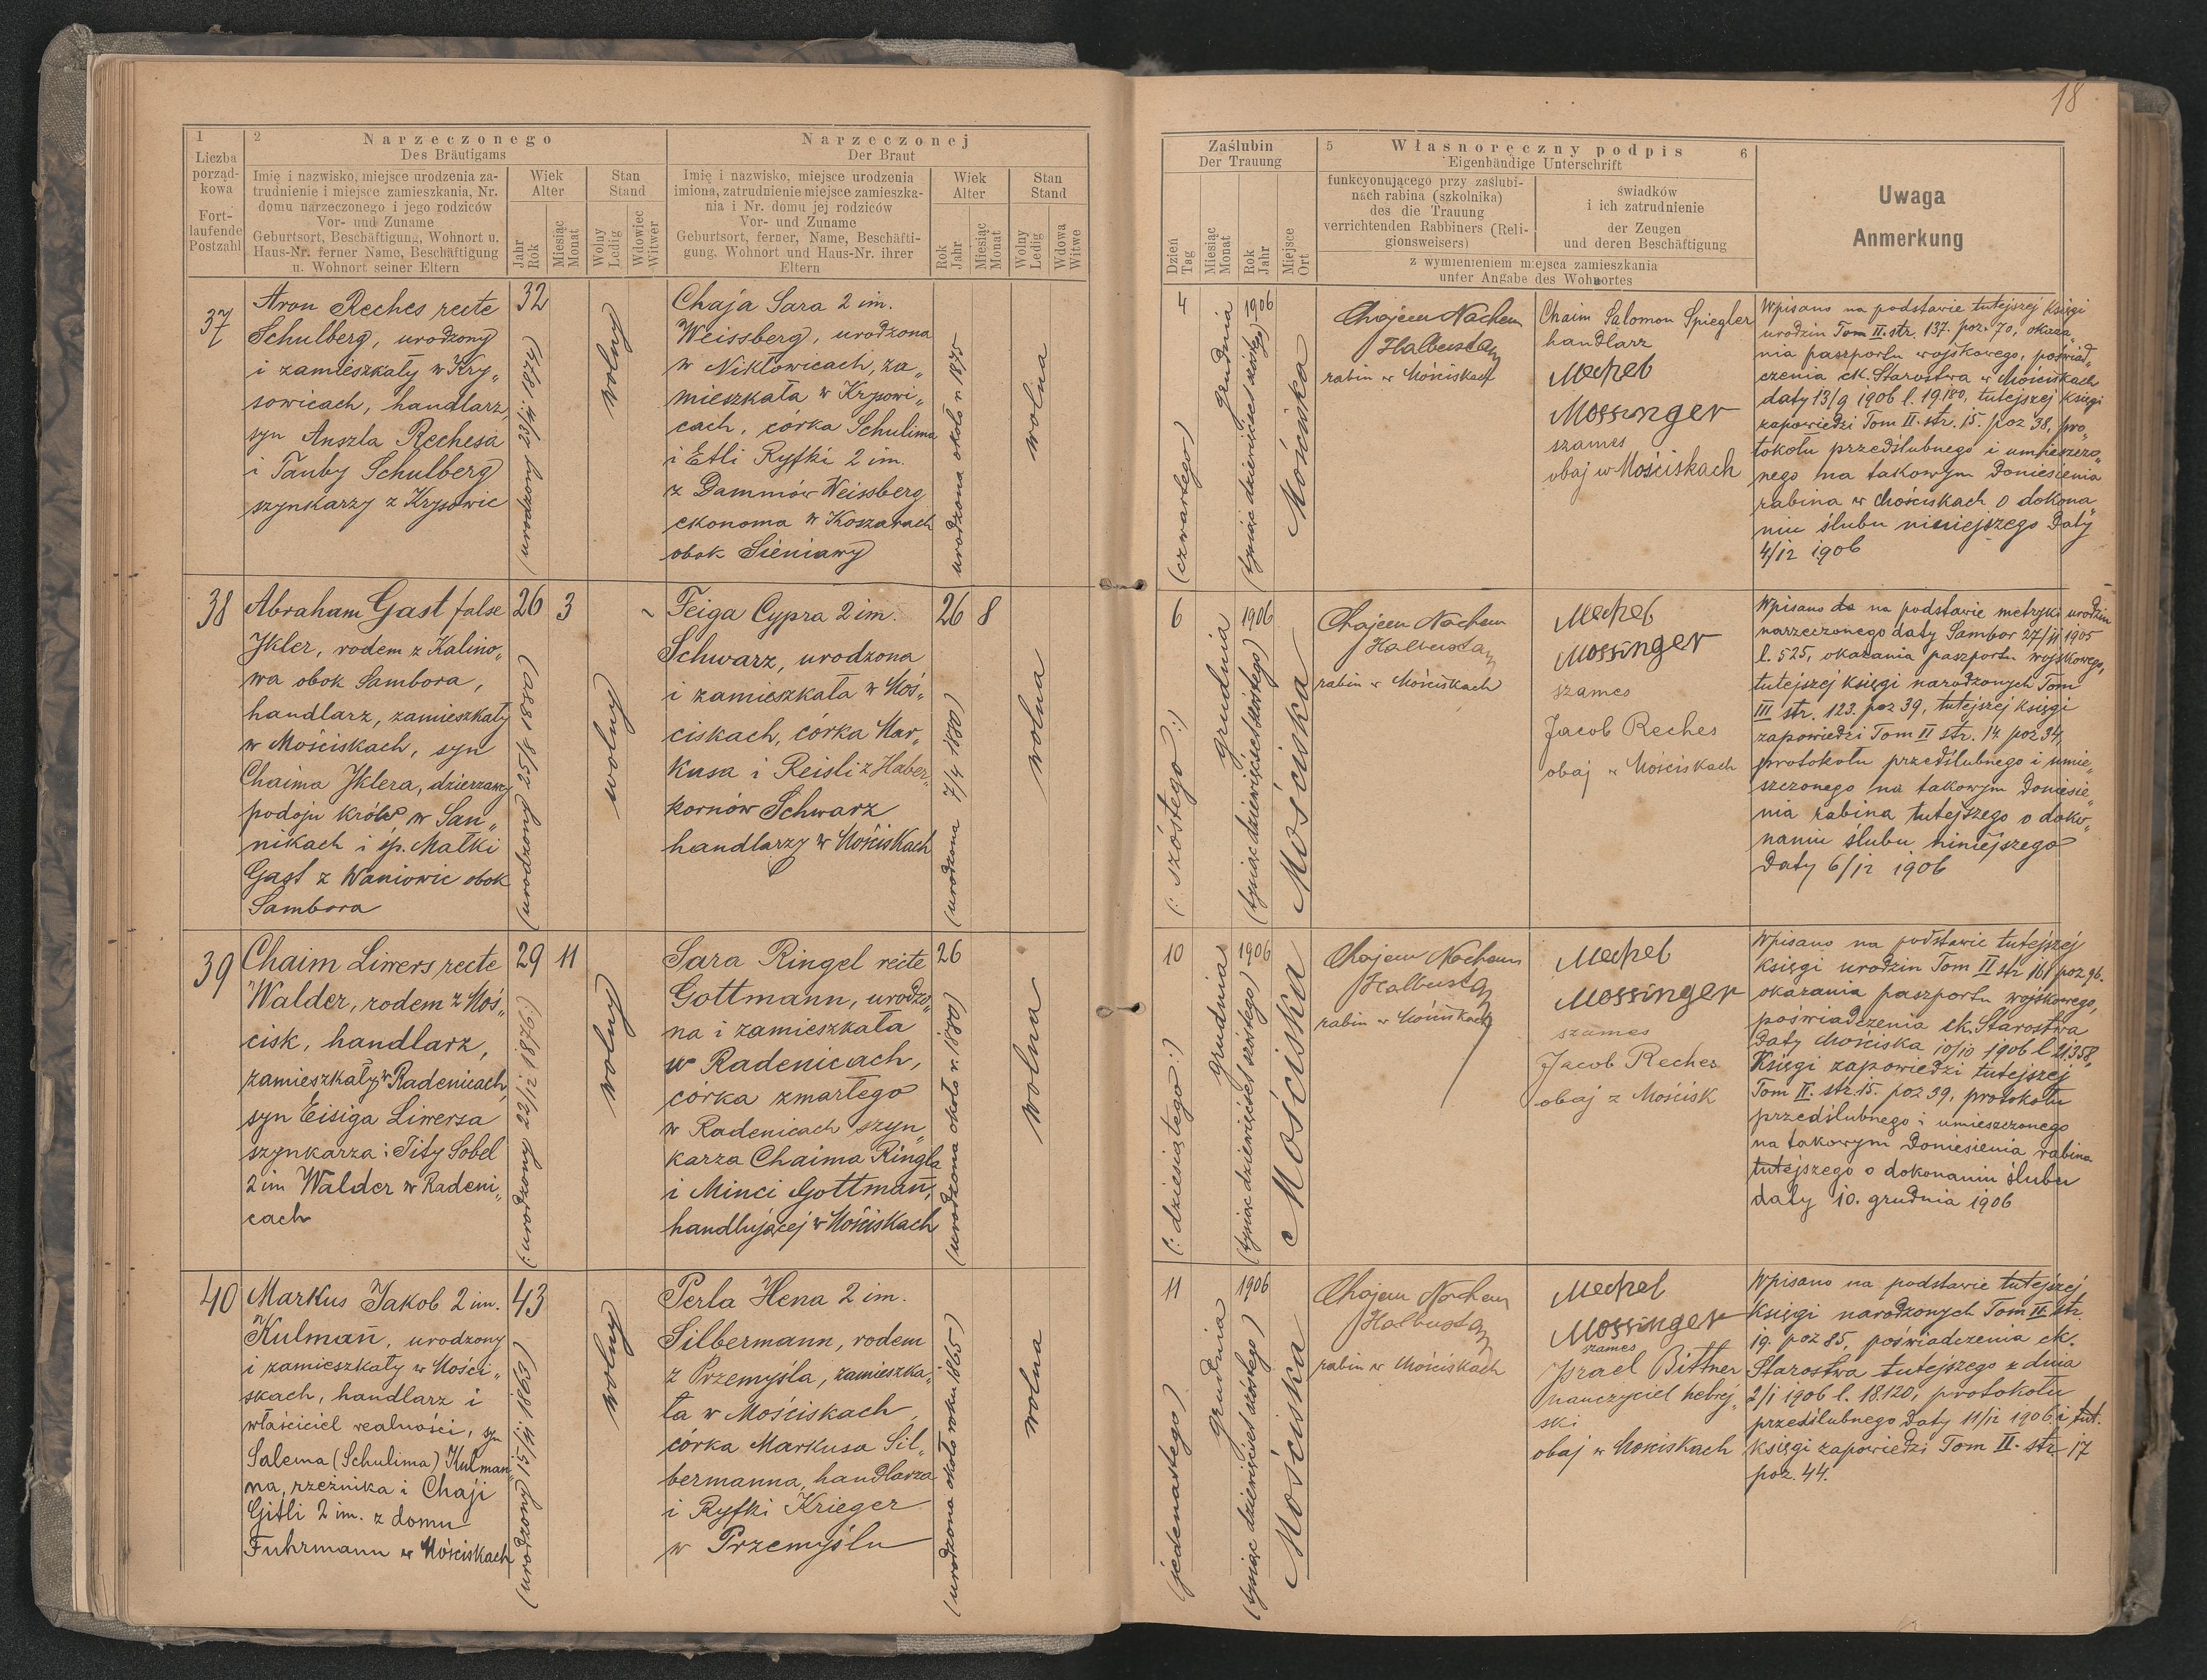 18
1
2
Narzeczonego
Des Bräutigams
Narzeczonej
Der Braut
Liczba
porząd-
kowa
Fort-
laufende
Postzahl
Imię i nazwisko, miejsce urodzenia za-
trudnienie i miejsce zamieszkania, Nr.
domu narzeczonego i jego rodziców
Vor- und Zuname
Geburtsort, Beschäftigung, Wohnort u.
Haus-Nr. ferner Name, Beschäftigung
u. Wohnort seiner Eltern
Wiek
Alter
Jahr
Rok
Miesiąc
Monat
Stan
Stand
Wolny
Ledig
Wdowiec
Witwer
Imię i nazwisko, miejsce urodzenia
imiona, zatrudnienie miejsce zamieszka-
nia i Nr. domu jej rodziców
Vor- und Zuname
Geburtsort, ferner, Name, Beschäfti-
gung, Wohnort und Haus-Nr. ihrer
Eltern
Wiek
Alter
Rok
Jahr
Miesiąc
Monat
Stan
Stand
Wolny
Ledig
Wdowa
Witwe
Zaślubin
Der Trauung
Dzień
Tag
Miesiąc
Monat
Rok
Jahr
Miejsce
Ort
5
Własnoręczny podpis
6
Eigenhändige Unterschrift
funkcyonującego przy zaślubi-
nach rabina (szkolnika)
des die Trauung
verrichtenden Rabbiners (Reli-
gionsweisers)
świadków
i ich zatrudnienie
der Zeugen
und deren Beschäftigung
z wymienieniem miejsca zamieszkania
unter Angabe des Wohnortes
Uwaga
Anmerkung
37
Aron Reches recte
Schulberg, urodzony
i zamieszkały w Kry„
sowicach, handlarz,
syn Anszla Rechesa
i Tauby Schulberg
szynkarzy z Krysowic
32
(urodzony 23/11 1874)
wolny
Chaja Sara 2 im.
Weissberg, urodzona
w Nikłowicach, za„
mieszkała w Krysowi„
cach, córka Schulima
i Etli Ryfki 2 im.
z Dammów Weissberg
ekonoma w Koszarach
obok Sieniawy
urodzona około r. 1875
wolna
4
(czwartego)
grudnia
1906
(tysiąc dziewięćset szóstego)
Mościska
Chajem Nachem
Halberstam
rabin w Mościskach
Chaim Salomon Spiegler
handlarz
Mechel
Mossinger
szames
obaj w Mościskach
Wpisano na podstawie tutejszej księgi
urodzin Tom II. str. 137. poz. 70, okaza„
nia paszportu wojskowego, poświad„
czenia ck. Starostwa w Mościskach
daty 13/9 1906 l. 19180, tutejszej księgi
zapowiedzi Tom II. str. 15. poz 38, pro„
tokołu przedślubnego i umieszczo„
nego na takowym doniesienia
rabina w Mościskach o dokona„
niu ślubu niniejszego daty
4/12 1906
38
Abraham Gast false
Ikler, rodem z Kalino„
wa obok Sambora,
handlarz, zamieszkały
w Mościskach, syn
Chaima Iklera, dzierzawcy
podoju krów w San„
nikach i śp. Małki
Gast z Waniowic obok
Sambora
26
3
(urodzony 25/8 1880)
wolny
Feiga Cypra 2 im.
Schwarz, urodzona
i zamieszkała w Moś„
ciskach, córka Mar„
kusa i Reisli z Haber„
kornów Schwarz
handlarzy w Mościskach
26
8
(urodzona 7/4 1880)
wolna
6
(: szóstego :)
grudnia
1906
(tysiąc dziewięćset szóstego)
Mościska
Chajem Nachem
Halberstam
rabin w Mościskach
Mechel
Mossinger
szames
Jacob Reches
obaj w Mościskach
Wpisano na podstawie metryki urodzin
narzeczonego daty Sambor 27/11 1905
l. 525, okazania paszportu wojskowego,
tutejszej księgi narodzonych Tom
III str. 123. poz 39, tutejszej księgi
zapowiedzi Tom II str. 14 poz 34,
protokołu przedślubnego i umie„
szczonego na takowym doniesie„
nia rabina tutejszego o doko„
naniu ślubu niniejszego
daty 6/12 1906
39
Chaim Liwers recte
Walder, rodem z Moś„
cisk, handlarz,
zamieszkały w Radenicach,
syn Eisiga Liwersa
szynkarza i Tity Sobel
2 im Walder w Radeni„
cach
29
11
(: urodzony 22/12 1876)
wolny
Sara Ringel recte
Gottmann, urodzo„
na i zamieszkała
w Radenicach,
córka zmarłego
w Radenicach szyn„
karza Chaima Ringla
i Minci Gottman̄,
handlującej w Mościskach
26
(urodzona około r. 1880)
wolna
10
(: dziesiątego :)
grudnia
1906
(tysiąc dziewięćset szóstego)
Mościska
Chajem Nachem
Halberstam
rabin w Mościskach
Mechel
Mossinger
szames
Jacob Reches
obaj z Mościsk
Wpisano na podstawie tutejszej
księgi urodzin Tom II str 161 poz 96.
okazania paszportu wojskowego,
poświadczenia ck. Starostwa
daty Mościska 10/10 1906 l 21358,
Księgi zapowiedzi tutejszej
Tom II. str. 15. poz 39, protokołu
przedślubnego i umieszczonego
na takowym doniesienia rabina
tutejszego o dokonaniu ślubu
daty 10. grudnia 1906
40
Markus Jakob 2 im.
Kulman̄, urodzony
i zamieszkały w Mości„
skach, handlarz i
właściciel realności, syn
Salema (Schulima) Kulman„
na, rzeźnika i Chaji
Gitli 2 im. z domu
Fuhrmann w Mościskach
43
(urodzony 15/11 1863)
wolny
Perla Hena 2 im.
Silbermann, rodem
z Przemyśla, zamieszka„
ła w Mościskach
córka Markusa Sil„
bermanna, handlarza
i Ryfki Krieger
w Przemyślu
(urodzona około roku 1865)
wolna
11
(jedenastego)
grudnia
1906
(tysiąc dziewięćset szóstego)
Mościska
Chajem Nachem
Halberstam
rabin w Mościskach
Mechel
Mossinger
szames
Israel Bittner
nauczyciel hebrej„
ski
obaj w Mościskach
Wpisano na podstawie tutejszej
księgi narodzonych Tom II. str.
19. poz 85, poświadczenia ck.
Starostwa tutejszego z dnia
2/1 1906 l. 18.120, protokołu
przedślubnego daty 11/12 1906 i tut.
księgi zapowiedzi Tom II. str 17
poz. 44.